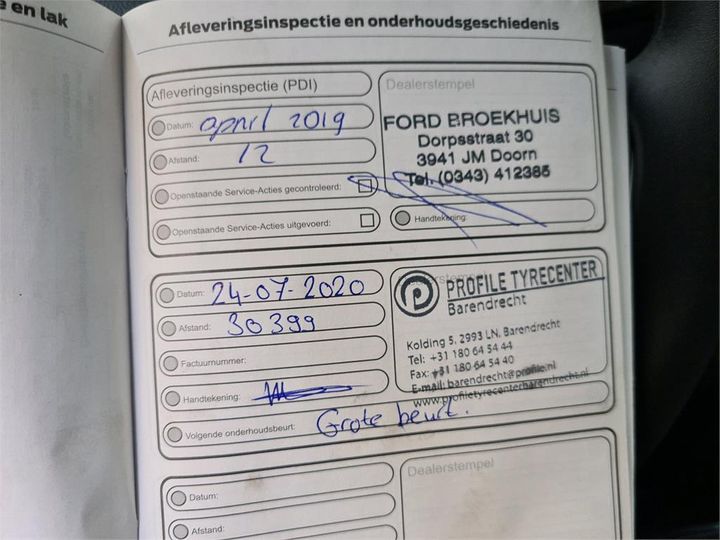 e en lak
Afleveringsinspectie en onderhoudsgeschiedenis
Afleveringsinspectie (PDI)
Datum: april 2019
Afstand: 12
Openstaande Service-Acties gecontroleerd:
Openstaande Service-Acties uitgevoerd:
Dealerstempel
FORD BROEKHUIS
Dorpsstraat 30
3941 JM Doorn
Tel. (0343) 412385
Handtekening:
Datum: 24-07-2020
Afstand: 30399
Factuurnummer:
Handtekening:
Volgende onderhoudsbeurt: Grote beurt.
Dealerstempel
PROFILE TYRECENTER
Barendrecht
Kolding 5, 2993 LN, Barendrecht
Tel: +31 180 64 54 44
Fax: +31 180 64 54 40
E-mail: barendrecht@profile.nl
www.profiletyrecenterbarendrecht.nl
Datum:
Afstand:
Dealerstempel